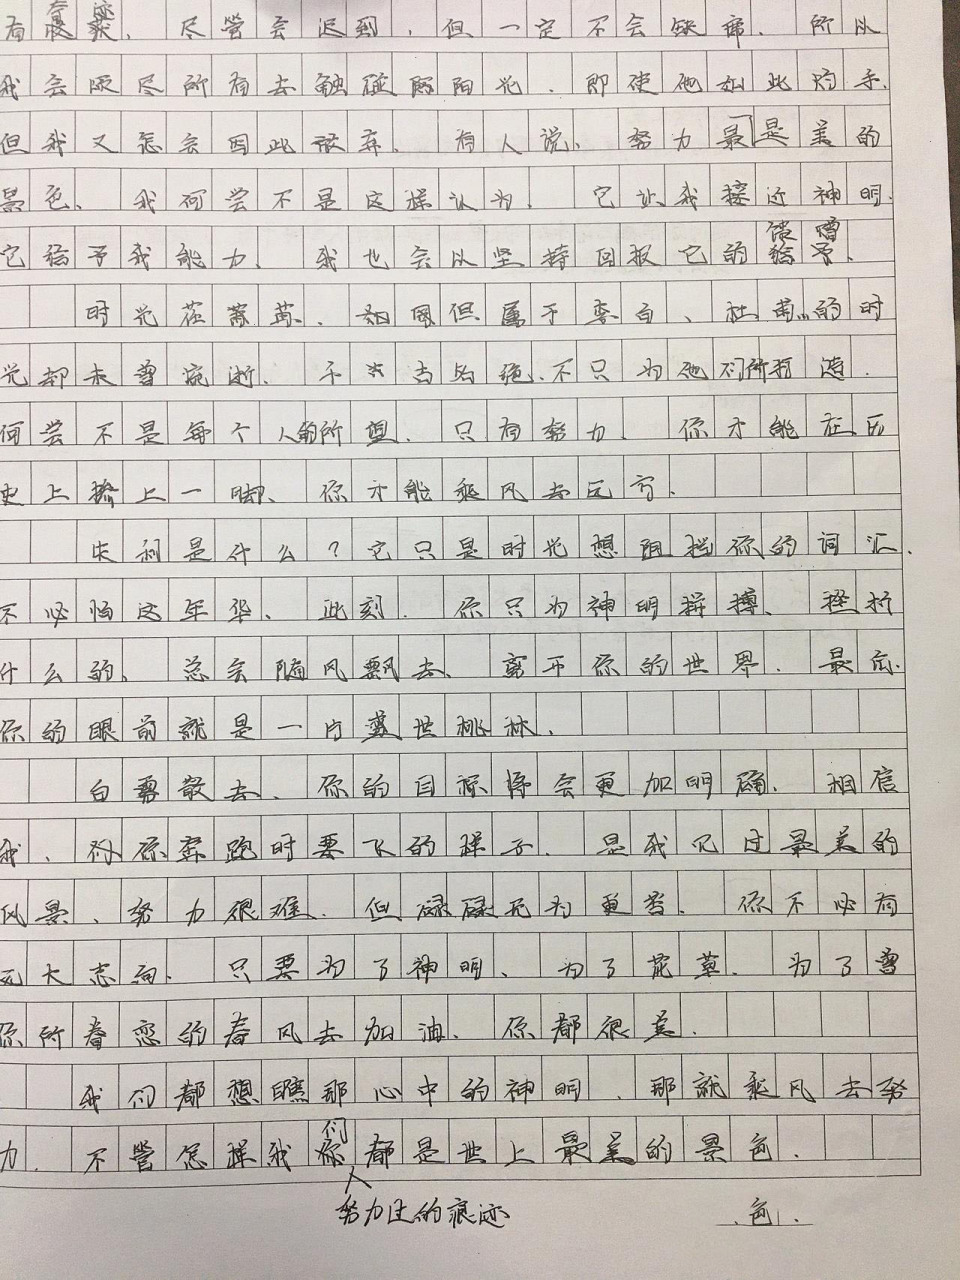 尽管会迟到，但一定不会缺席．所以
我会倾尽所有去触碰阳光．即使他如此灼手．
但我又怎会因此放弃．有人说．努力最是美的
景色．我何尝不是这样认为．它让我接近神明．
它给予我能力．我也会以坚持回报它的馈赠
时光荏苒．但属于李白、杜甫的时
光却未曾流逝．千古名绝．不只为他们所打造．
何尝不是每个人的所望．只有努力．你才能在历
史上掺上一脚．你才能乘风去远方．
失利是什么？它只是时光想阻拦你的词汇．
不必怕这年华．此刻．你只为神明拼搏．挫折
什么的．总会随风飘去．离开你的世界．最后．
你的眼前就是一片盛世桃林．
白雾散去．你的目标将会更加明确．相信
我．你奔跑时要飞的样子．是我见过最美的
风景．努力很难．但碌碌无为更苦．你不必有
远大志向．只要为了神明、为了花草．为了曾
你所眷恋的春风去加油．你都很美．
我们都想瞧那心中的神明．那就乘风去努
力．不管怎样我们都是世上最美的景色．
努力过的痕迹 色